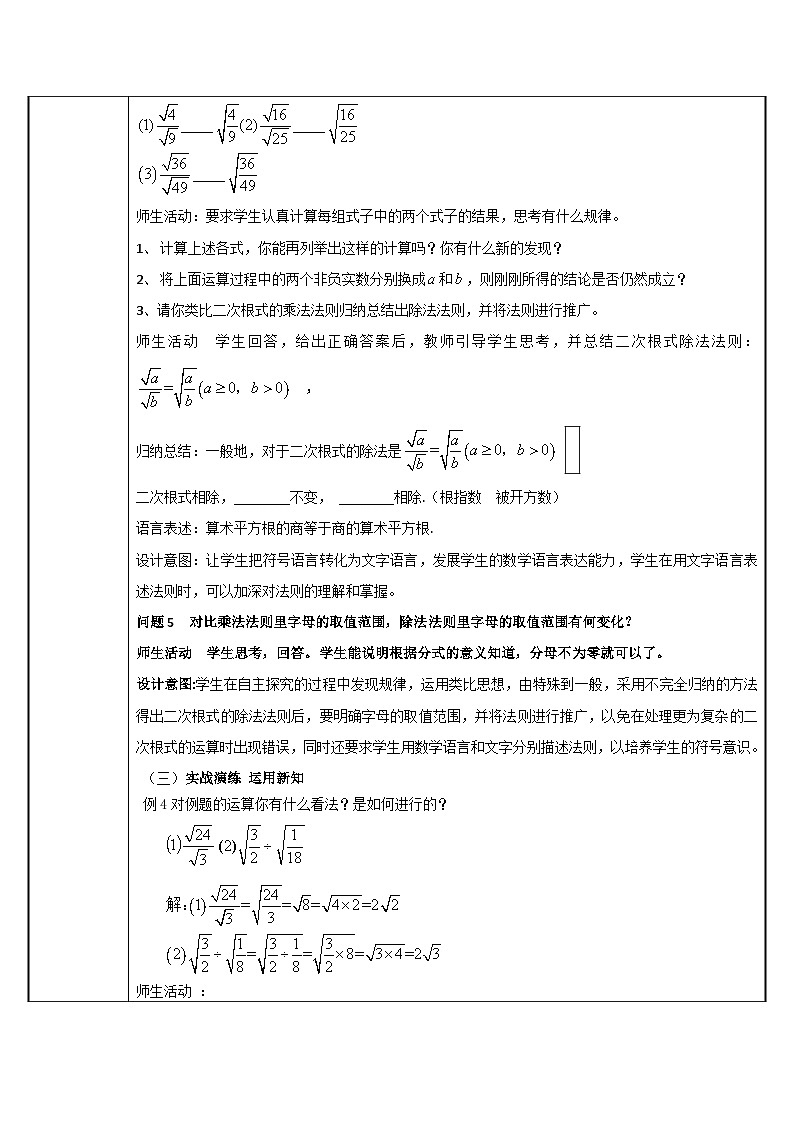 (1) √4/√9 ____ √(4/9) (2) √16/√25 ____ √(16/25)
(3) √36/√49 ____ √(36/49)
师生活动：要求学生认真计算每组式子中的两个式子的结果，思考有什么规律。
1、 计算上述各式，你能再列举出这样的计算吗？你有什么新的发现？
2、 将上面运算过程中的两个非负实数分别换成a和b，则刚刚所得的结论是否仍然成立？
3、请你类比二次根式的乘法法则归纳总结出除法法则，并将法则进行推广。
师生活动　学生回答，给出正确答案后，教师引导学生思考，并总结二次根式除法法则：
√a/√b=√(a/b) (a≥0，b>0) ，
归纳总结：一般地，对于二次根式的除法是√a/√b=√(a/b) (a≥0，b>0)
二次根式相除，________不变， ________相除.（根指数　被开方数）
语言表述：算术平方根的商等于商的算术平方根.
设计意图：让学生把符号语言转化为文字语言，发展学生的数学语言表达能力，学生在用文字语言表
述法则时，可以加深对法则的理解和掌握。
问题5　对比乘法法则里字母的取值范围，除法法则里字母的取值范围有何变化？
师生活动　学生思考，回答。学生能说明根据分式的意义知道，分母不为零就可以了。
设计意图:学生在自主探究的过程中发现规律，运用类比思想，由特殊到一般，采用不完全归纳的方法
得出二次根式的除法法则后，要明确字母的取值范围，并将法则进行推广，以免在处理更为复杂的二
次根式的运算时出现错误，同时还要求学生用数学语言和文字分别描述法则，以培养学生的符号意识。
（三）实战演练 运用新知
例4对例题的运算你有什么看法？是如何进行的？
(1) √24/√3 (2) √(3/2) ÷ √(1/18)
解:(1) √24/√3=√(24/3)=√8=√(4×2)=2√2
(2) √(3/2)÷√(1/8)=√(3/2÷1/8)=√(3/2×8)=√(3×4)=2√3
师生活动 ：